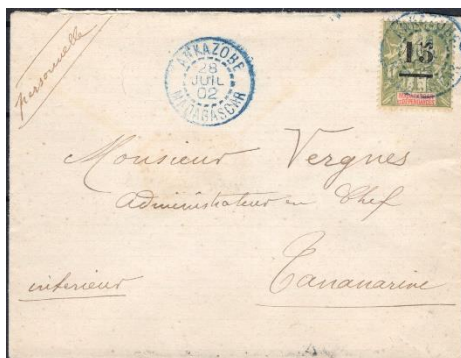 personnelle
ANKAZOBE
28
JUIL
02
MADAGASCAR
15
Monsieur Vergnes
Administrateur en Chef
Tananarive
intérieur